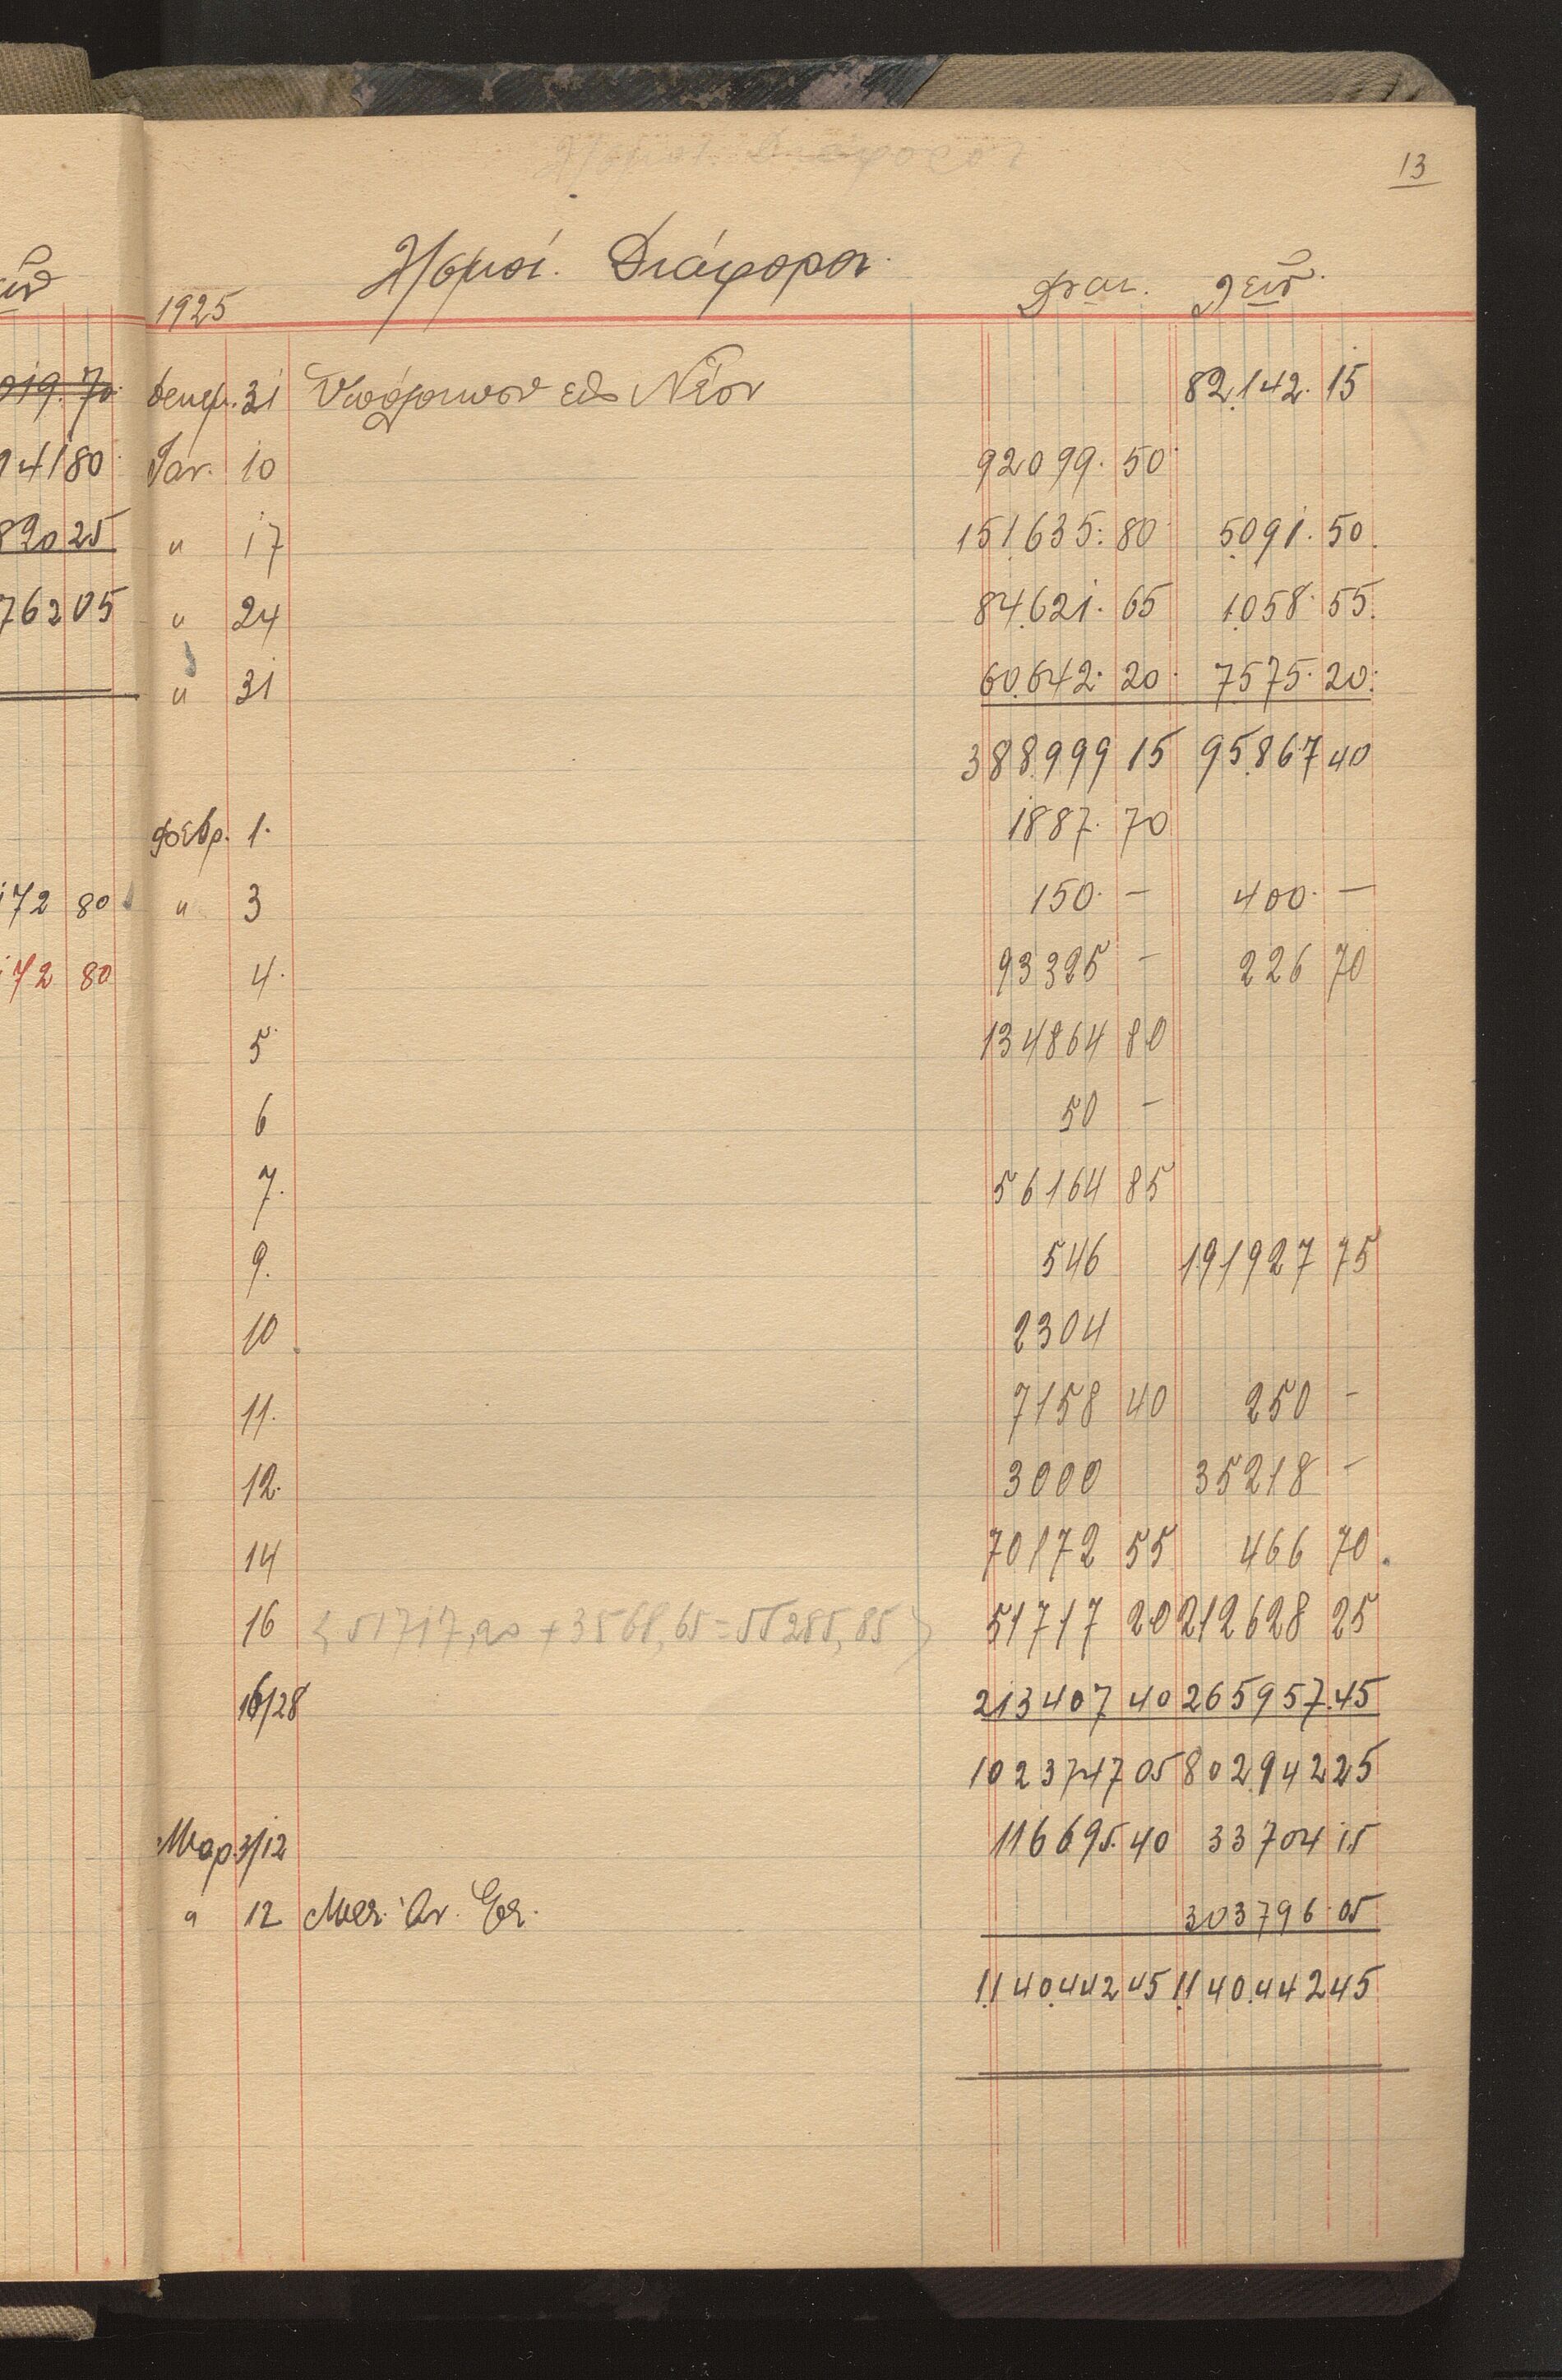 13
Διάφοροι
1925
Δεκεμ. 31 Υπόλοιπον εις Νέον 82.142. 15
Ιαν. 10 92099. 50
" 17 151.635. 80 5.091. 50
" 24 84.621. 65 1.058. 55
" 31 60.642. 20 7.575. 20
388.999 15 95.867 40
Φεβρ. 1. 1887. 70
" 3 150. — 400. —
4. 93325 — 226 70
5 134864 80
6 50 —
7. 56164 85
9. 546 191927 75
10 2304
11. 7158 40 250 —
12. 3000 35218 —
14 70172 55 466 70
16 (51717,20 + 3568,65 = 55285,85) 51717 20 212628 25
16/28 213407 40 265957. 45
1023747 05 802942 25
Μαρ. 3/12 116695. 40 33704 15
" 12 303796. 05
1.140.442 45 1.140.442 45
019. 70
14180
89025
76205
172 80
172 80